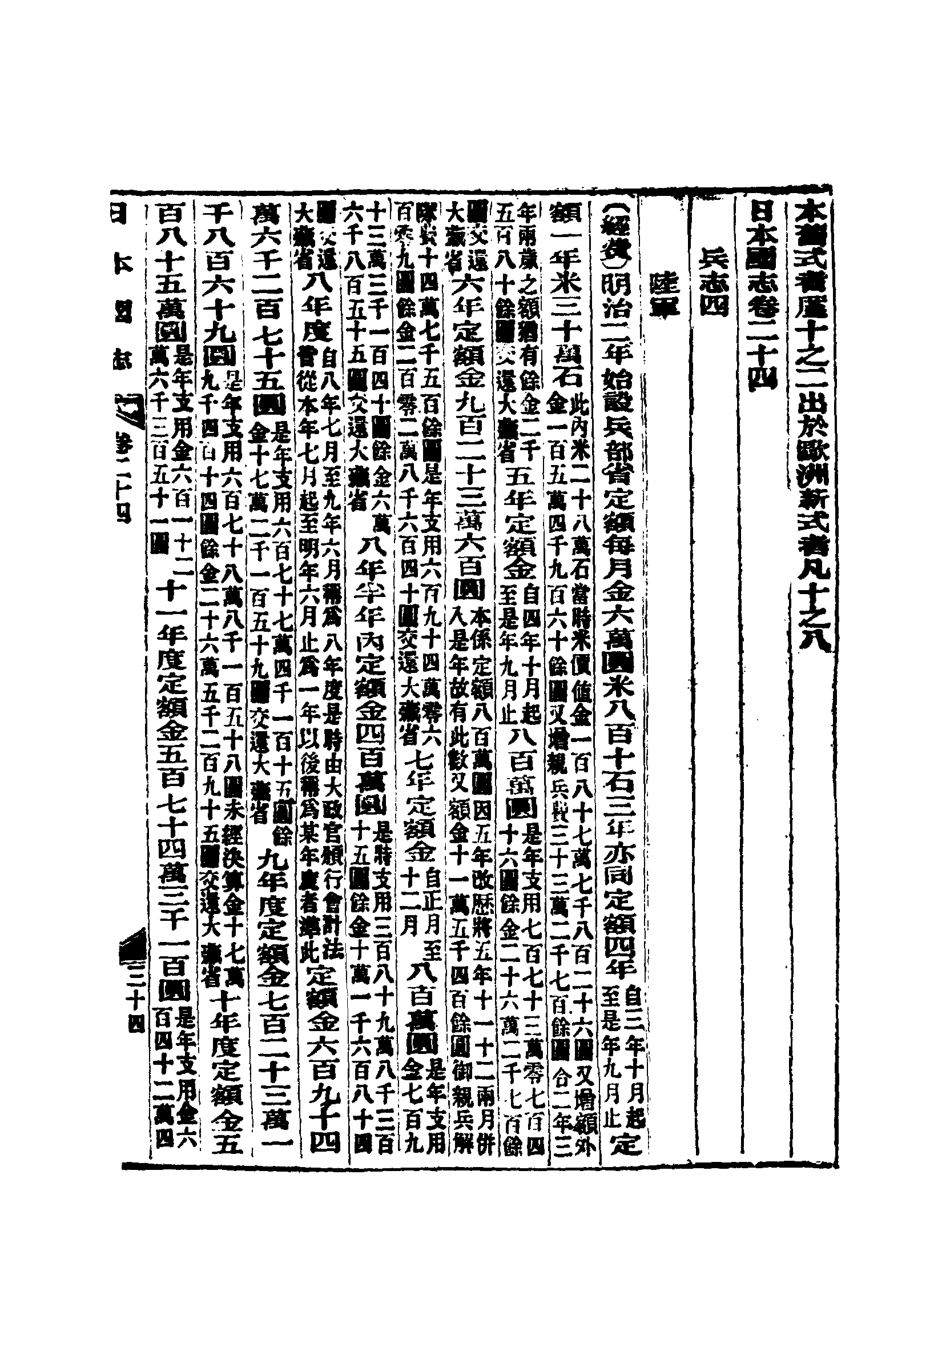 本舊式者廑十之二出於歐洲新式者凡十之八
日本國志卷二十四
兵志四
陸軍
(經費)明治二年始設兵部省定額每月金六萬圓米八百十石三年亦同定額四年自三年十月起至是年九月止定
額一年米三十萬石此內米二十八萬石當時米價値金一百八十七萬七千八百二十六圓又增額外金一百五萬四千九百六十餘圓又增親兵費三十三萬二千七百餘圓合二年三
年兩歲之額猶有餘金二千五百八十餘圓交還大藏省五年定額金自四年十月起至是年九月止八百萬圓是年支用七百七十三萬零七百四十六圓餘金二十六萬二千七百餘
圓交還大藏省六年定額金九百二十三萬六百圓本係定額八百萬圓因五年改歷將五年十一十二兩月併入是年故有此數又額金十一萬五千四百餘圓御親兵解
隊費十四萬七千五百餘圓是年支用六百九十四萬零六百零九圓餘金二百零二萬八千六百四十圓交還大藏省七年定額金自正月至十二月八百萬圓是年支用金七百九
十三萬三千一百四十圓餘金六萬六千八百五十五圓交還大藏省八年半年內定額金四百萬圓是時支用三百八十九萬八千三百十五圓餘金十萬一千六百八十四
圓交還大藏省八年度自八年七月至九年六月稱爲八年度是時由大政官頒行會計法嘗從本年七月起至明年六月止爲一年以後稱爲某年度者準此定額金六百九十四
萬六千二百七十五圓是年支用六百七十七萬四千一百十五圓餘金十七萬二千一百五十九圓交還大藏省九年度定額金七百二十三萬一
千八百六十九圓是年支用六百七十八萬八千一百五十八圓未經決算金十七萬九千四百十四圓餘金二十六萬五千二百九十五圓交還大藏省十年度定額金五
百八十五萬圓是年支用金六百一十二萬六千三百五十一圓十一年度定額金五百七十四萬三千一百圓是年支用金六百四十二萬四
日本國志 卷二十四 三十四